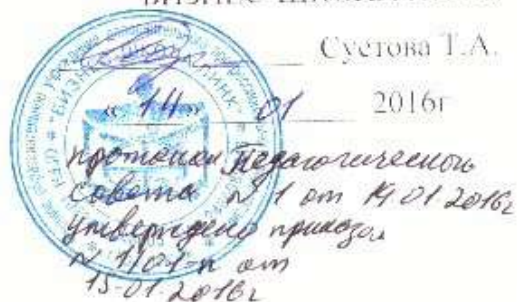 БИЗНЕС
Суетова Т.А.
«14» 01 2016г
протокол Педагогического
Совета № 1 от 14.01.2016г
утверждено приказом
№ 1/01-п от
15.01.2016г